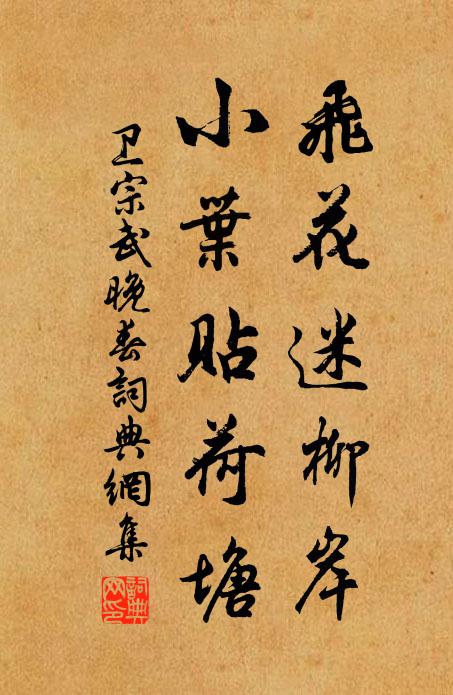 飛花迷柳岸
小葉貼荷塘
卫宗武晚春詞典網集
詞典
网印